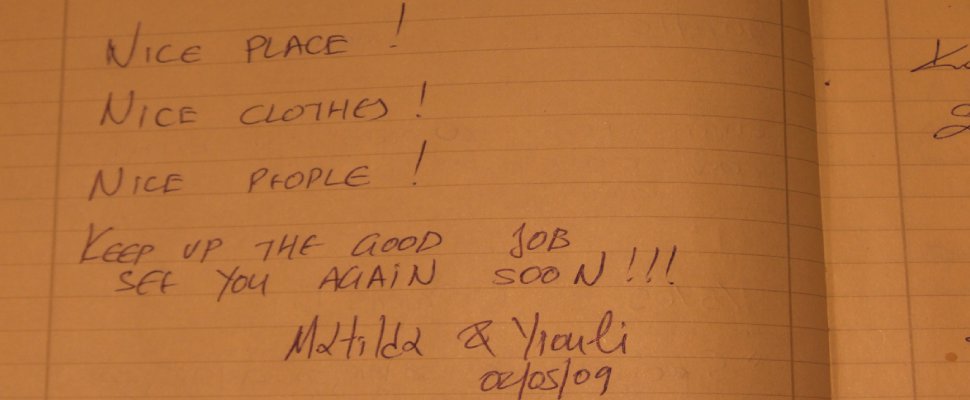 NICE PLACE!
NICE CLOTHES!
NICE PEOPLE!
KEEP UP THE GOOD JOB
SEE YOU AGAIN SOON!!!
Matilda & Yiouli
02/05/09